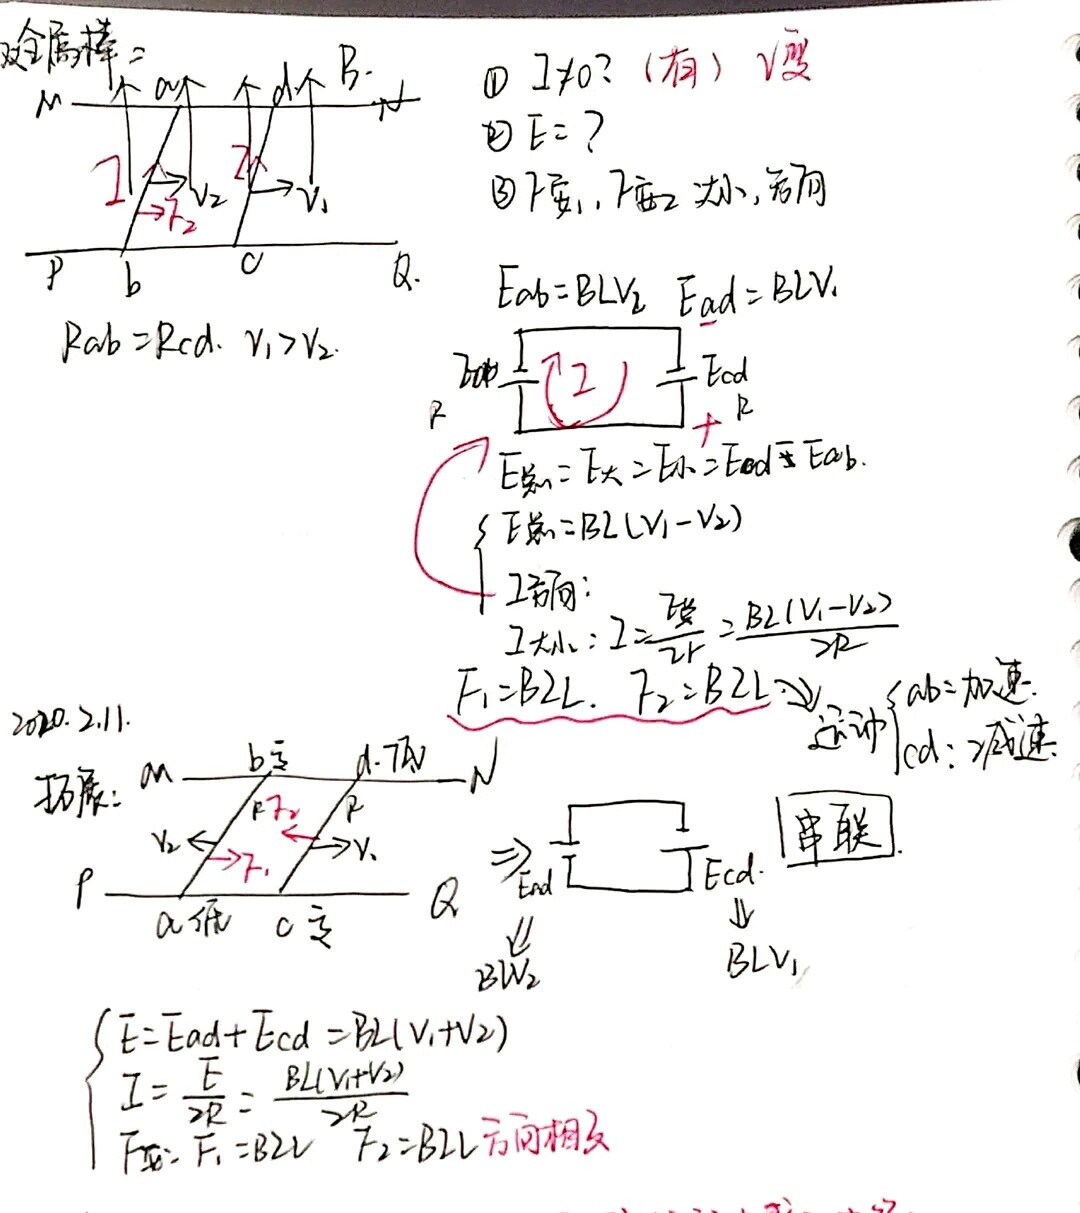 双金属棒=
M a d B. N
I V₂ F₂ I V₁
P b C Q.
Rab=Rcd. V₁>V₂.
① I≠0? (有) V变
② E=?
③ F安₁, F安₂ 大小, 方向
Eab=BLV₂ Ead=BLV₁
Eab I Ecd
R + R
E总=E大=E小=Ecd Eab.
E总=BL(V₁-V₂)
I方向:
I大小: I=E总/2r=BL(V₁-V₂)/2R
F₁=BIL. F₂=BIL. ⇒ 运动 { ab=加速.
cd: 减速.
2020.2.11.
拓展: M b高 d.低 N
R F₂ R
V₂ F₁ V₁
P a低 c高 Q
⇒ Ead Ecd. 串联.
BLV₂ BLV₁
E=Ead+Ecd=BL(V₁+V₂)
I=E/2R=BL(V₁+V₂)/2R
F安= F₁=BIL F₂=BIL 方向相反